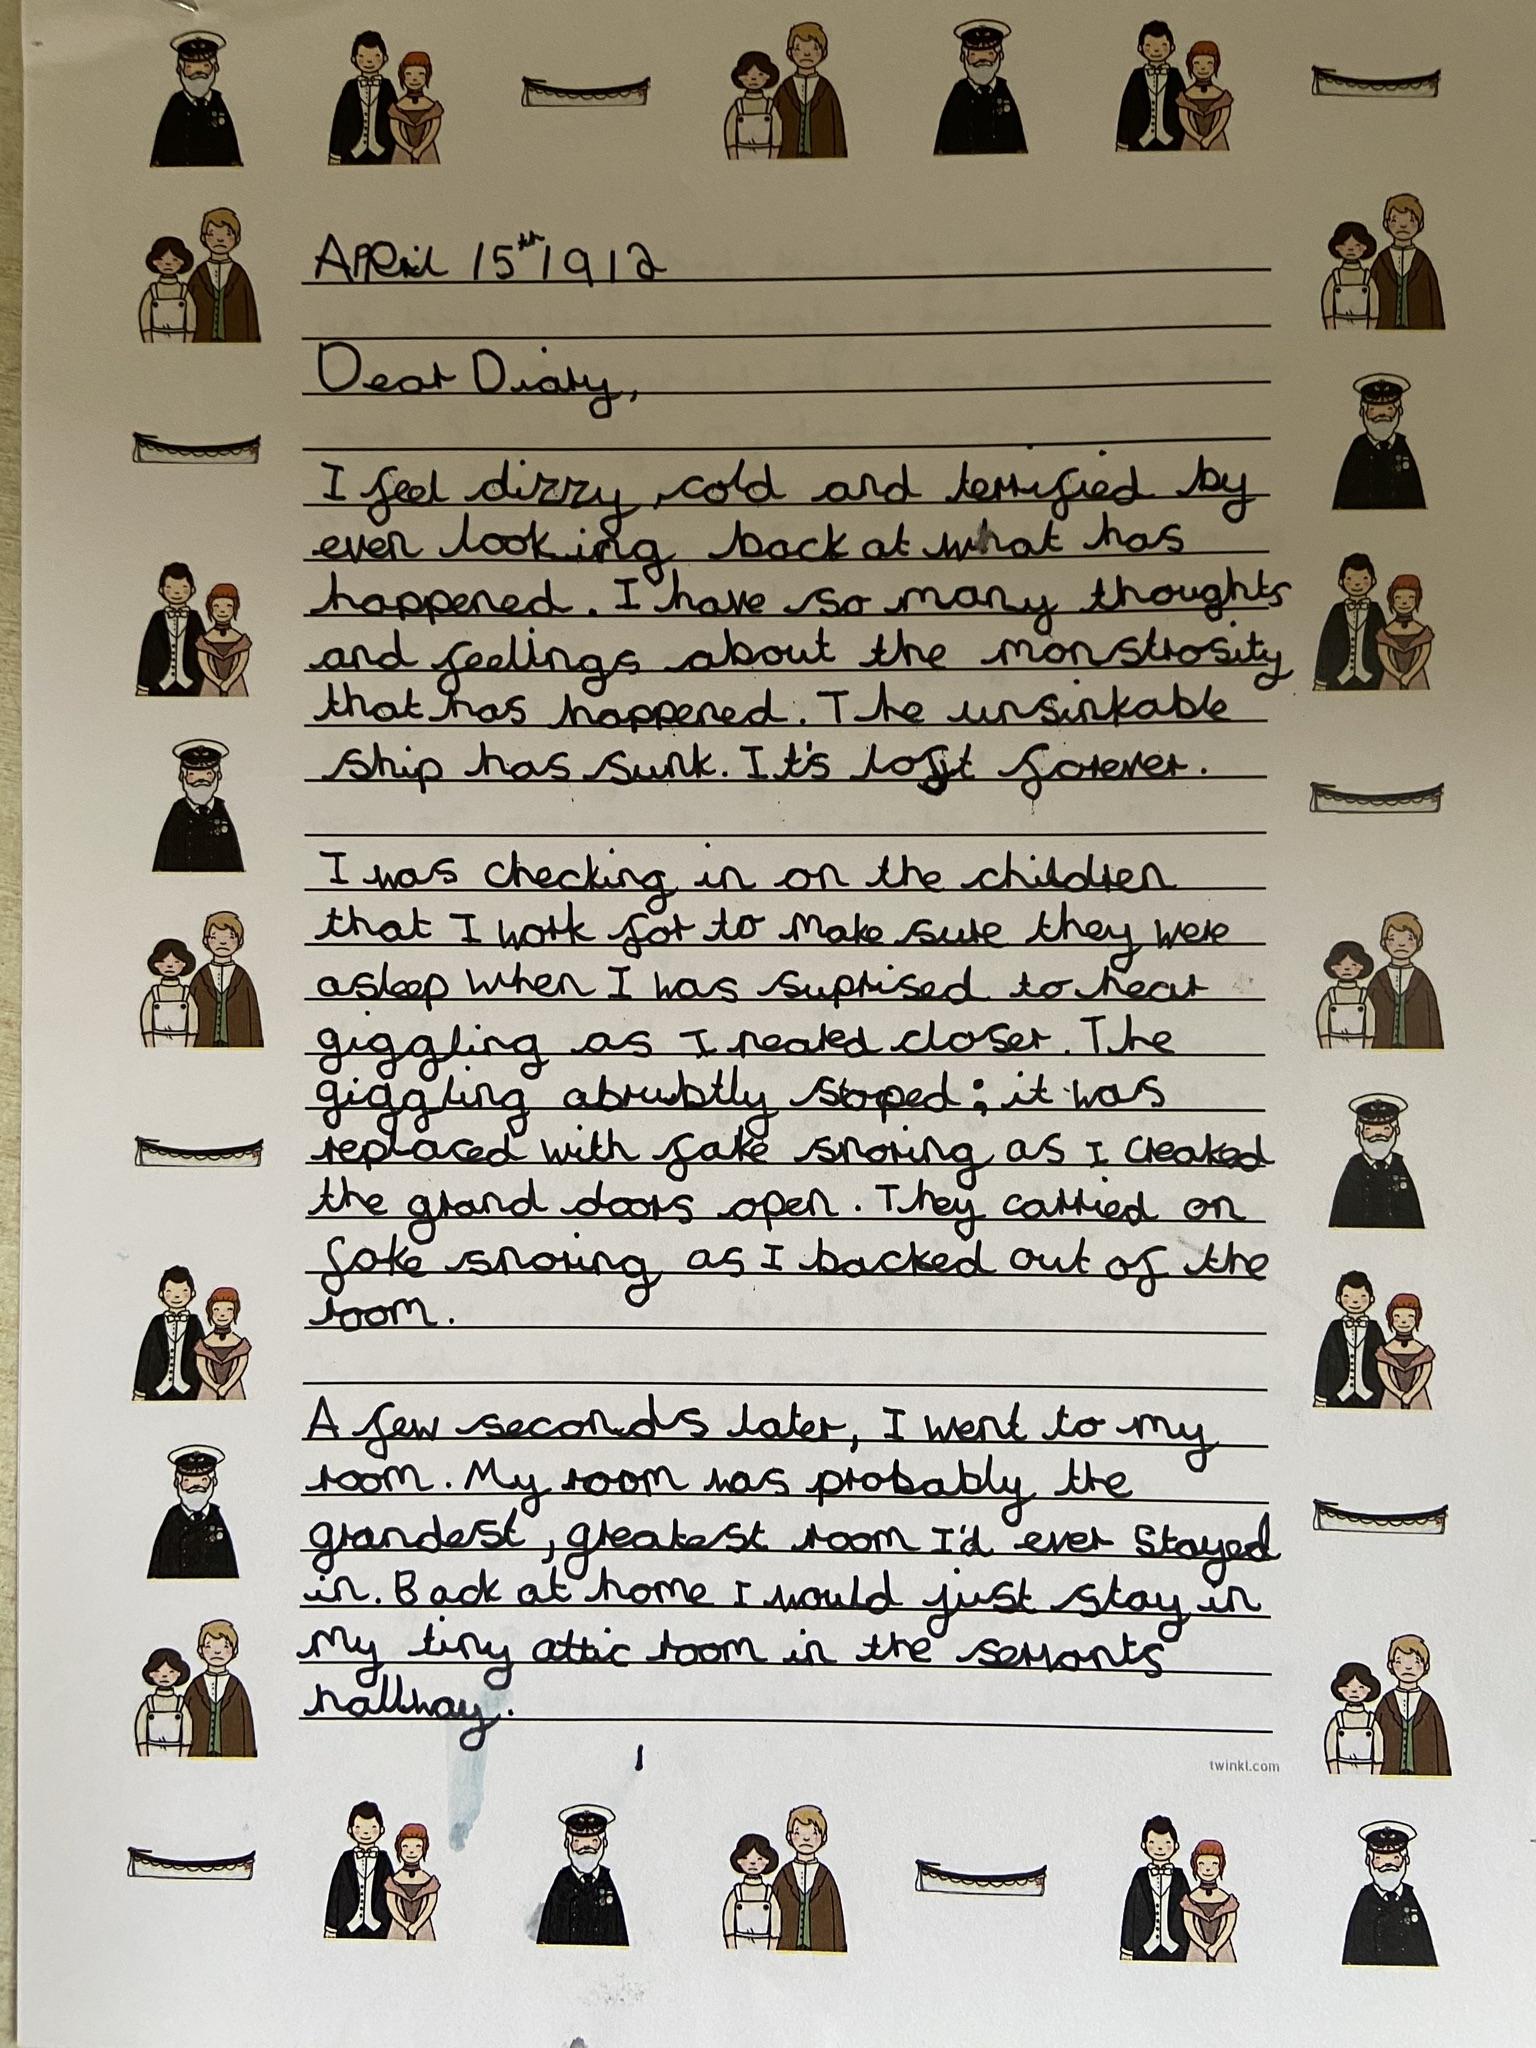 April 15th 1912
Dear Diary,
I feel dizzy, cold and terrified by
even looking back at what has
happened. I have so many thoughts
and feelings about the monstrosity
that has happened. The unsinkable
ship has sunk. It's lost forever.
I was checking in on the children
that I work for to make sure they were
asleep when I was suprised to hear
giggling as I neared closer. The
giggling abrubtly stoped; it was
replaced with fake snoring as I creaked
the grand doors open. They carried on
fake snoring as I backed out of the
room.
A few seconds later, I went to my
room. My room was probably the
grandest, greatest room I'd ever stayed
in. Back at home I would just stay in
my tiny attic room in the servants
hallway.
1
twinkl.com